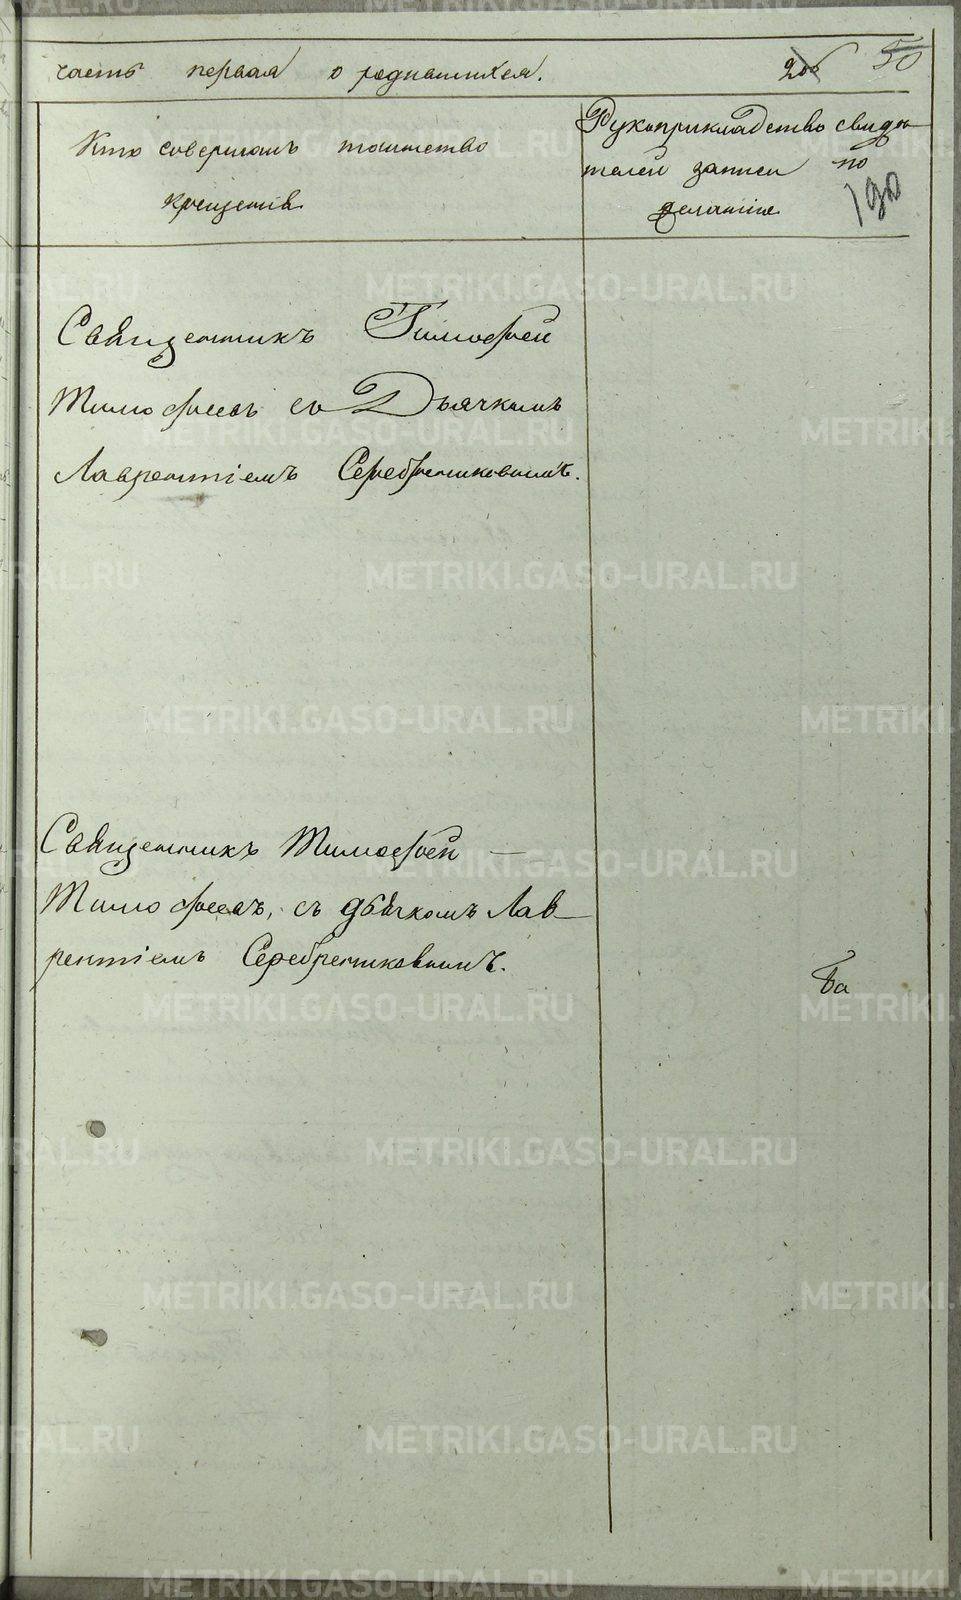 часть первая о родившихся. 50
Кто совершалъ таинство
крещенія
Рукоприкладство свидѣ
телей записи по
желанію
190
Священникъ Тимофей
Тимофеевъ съ Дьячкомъ
Лаврентіемъ Серебренниковымъ.
Священникъ Тимофей —
Тимофеевъ, съ дьячкомъ Лав
рентіемъ Серебрениковымъ.
METRIKI.GASO-URAL.RU